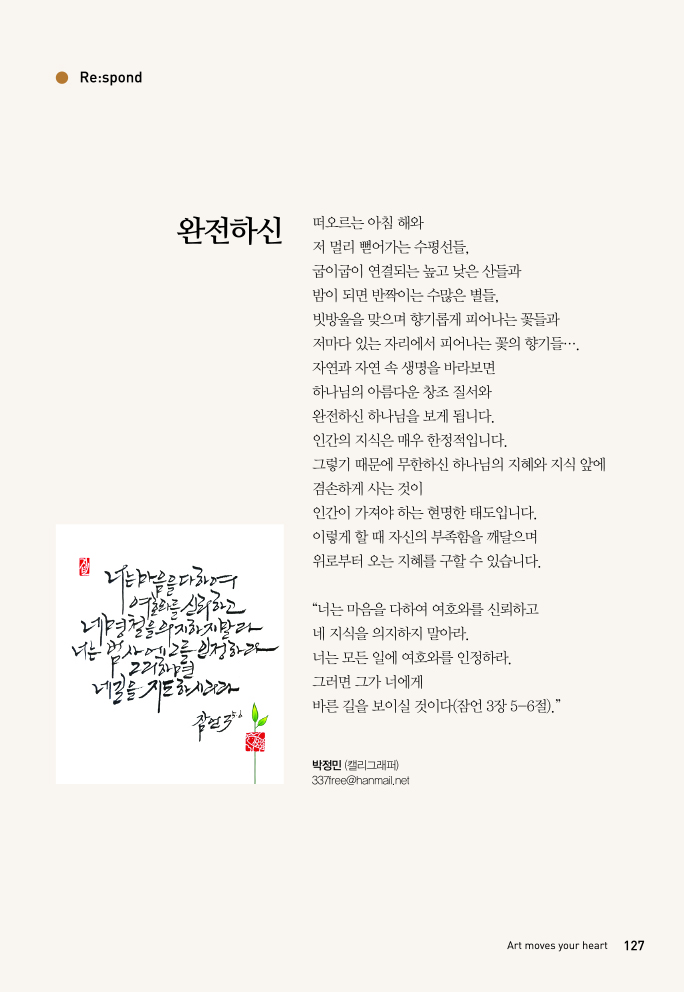 Re:spond
완전하신
떠오르는 아침 해와
저 멀리 뻗어가는 수평선들,
굽이굽이 연결되는 높고 낮은 산들과
밤이 되면 반짝이는 수많은 별들,
빗방울을 맞으며 향기롭게 피어나는 꽃들과
저마다 있는 자리에서 피어나는 꽃의 향기들….
자연과 자연 속 생명을 바라보면
하나님의 아름다운 창조 질서와
완전하신 하나님을 보게 됩니다.
인간의 지식은 매우 한정적입니다.
그렇기 때문에 무한하신 하나님의 지혜와 지식 앞에
겸손하게 사는 것이
인간이 가져야 하는 현명한 태도입니다.
이렇게 할 때 자신의 부족함을 깨달으며
위로부터 오는 지혜를 구할 수 있습니다.
“너는 마음을 다하여 여호와를 신뢰하고
네 지식을 의지하지 말아라.
너는 모든 일에 여호와를 인정하라.
그러면 그가 너에게
바른 길을 보이실 것이다(잠언 3장 5-6절).”
박정민 (캘리그래퍼)
337free@hanmail.net
너는 마음을 다하여
여호와를 신뢰하고
네 명철을 의지하지 말라
너는 범사에 그를 인정하라
그리하면
네 길을 지도하시리라
잠언 3 5.6
Art moves your heart 127